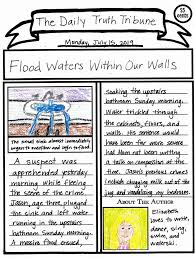 The Daily Truth Tribune
55 cents
Monday, July 15, 2019
Flood Waters Within Our Walls
The small sink almost immediately
began to overflow and begin to flood
A suspect was
apprehended yesterday
morning while fleeing
the scene of the crime.
Jason, age three, plugged
the sink and left water
running in the upstairs
bathroom Sunday morning.
A massive flood ensued,
soaking the upstairs
bathroom Sunday morning.
Water trickled through
the cabinets, fixers, and
walls. His sentence would
have been far more severe
had Mom not been writing
a talk on compassion at the
time. Jason's previous crimes
include chugging milk out of the
jug and lavishing eggnog on ice cream.
About The Author
Elizabeth
loves to write,
dance, sing,
swim, and
waterski.